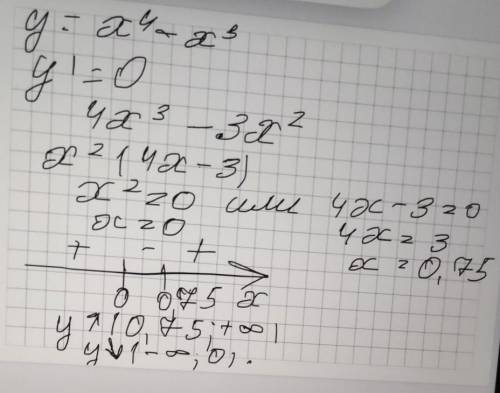 y = x⁴ - x³
y' = 0
4x³ - 3x²
x² (4x - 3)
x² = 0 или 4x - 3 = 0
x = 0 4x = 3
x = 0,75
+ - +
0 0,75 x
y ↑ (0,75; +∞)
y ↓ (-∞; 0;.